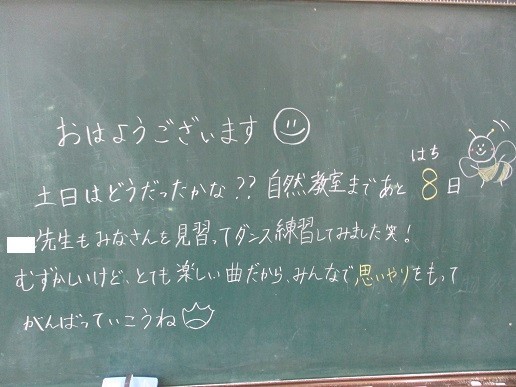 おはようございます
はち
土日はどうだったかな?? 自然教室まであと8日
先生もみなさんを見習ってダンス練習してみました笑!
むずかしいけど、とても楽しい曲だから、みんなで思いやりをもって
がんばっていこうね